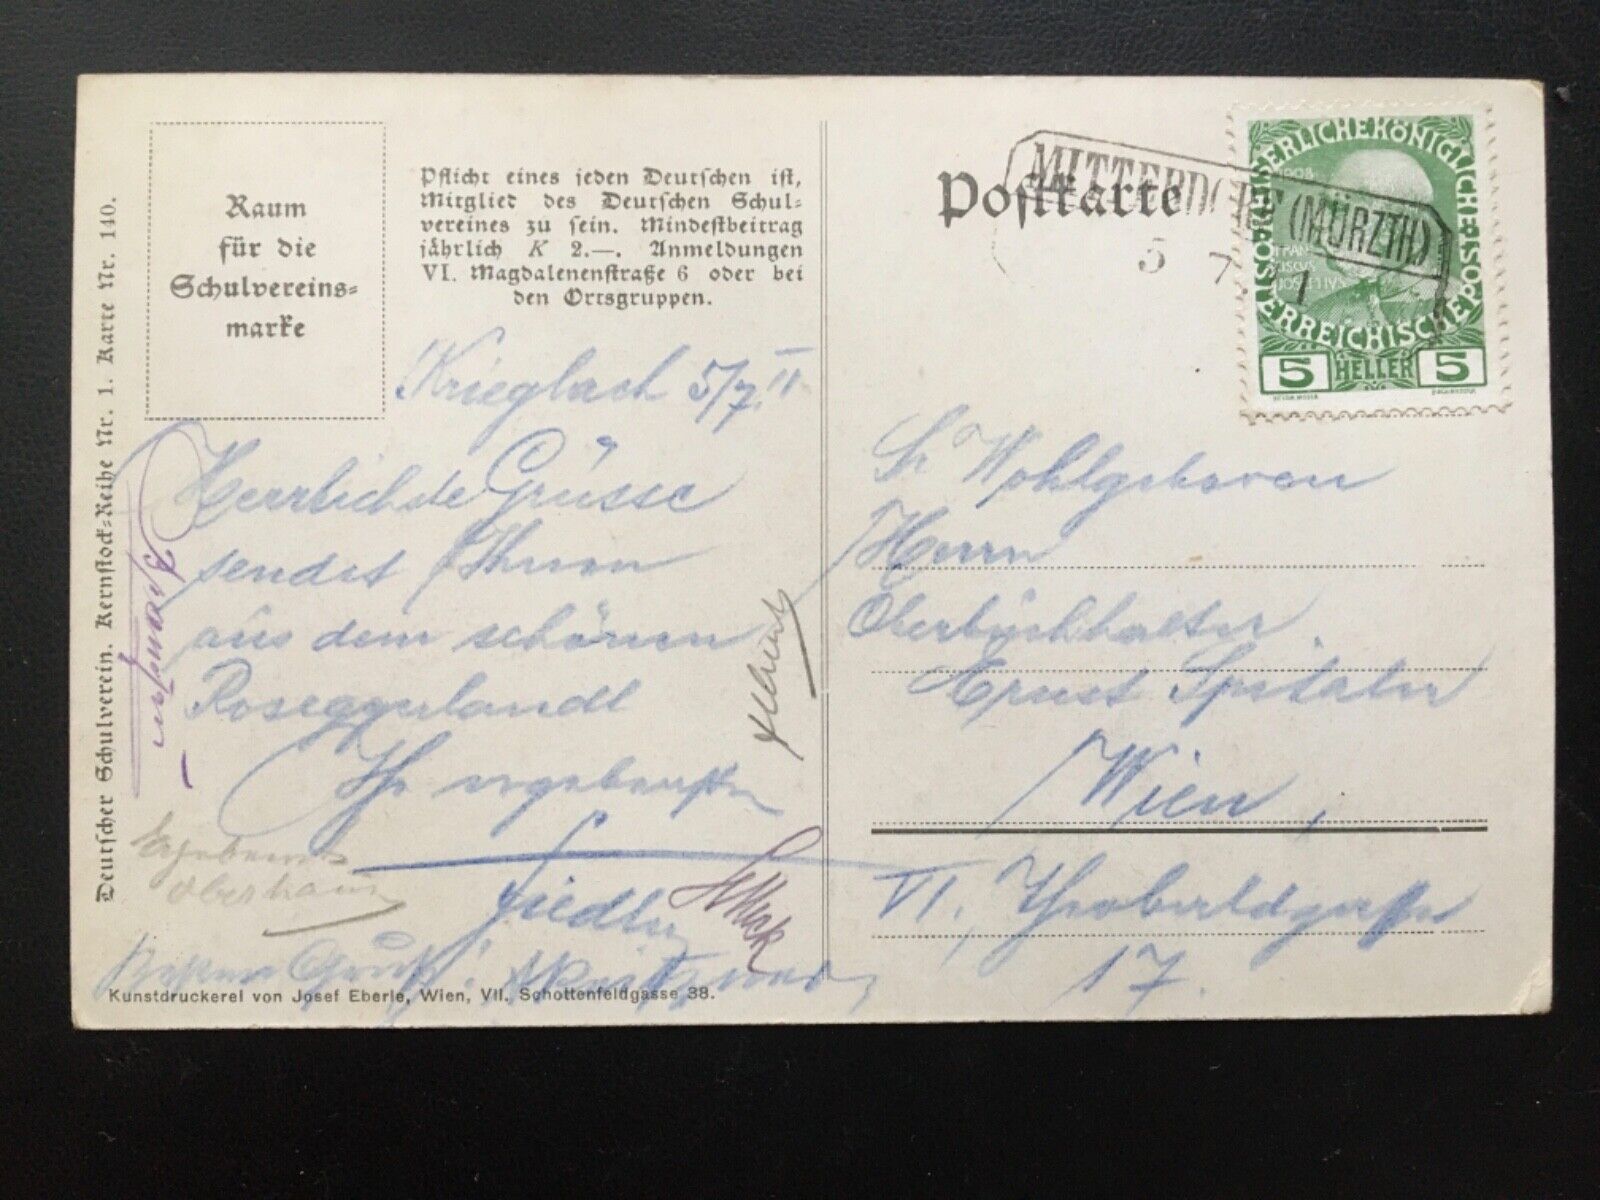 Deutscher Schulverein. Kernstock=Reihe Nr. 1. Karte Nr. 140.
Raum
für die
Schulvereins=
marke
Pflicht eines jeden Deutschen ist,
Mitglied des Deutschen Schul=
vereines zu sein. Mindestbeitrag
jährlich K 2.—. Anmeldungen
VI. Magdalenenstraße 6 oder bei
den Ortsgruppen.
Krieglach 5/7. 11
Herrlichste Grüsse
sendet Ihnen
aus dem schönen
Roseggerlandl
Ihr ergebenster
Fiedler
Ergebenst
Oberhaus
Kunstdruckerei von Josef Eberle, Wien, VII. Schottenfeldgasse 38.
Postkarte
MITTERDORF (MÜRZTH)
5 7
KAISERLICHE KÖNIGLICHE
ÖSTERREICHISCHE POST
1908
FRAN
CISCUS
JOSEPHUS
5 HELLER 5
Sr Wohlgeboren
Herrn
Oberbuchhalter
Ernst Spitaler
Wien,
VI, Theobaldgasse
17.